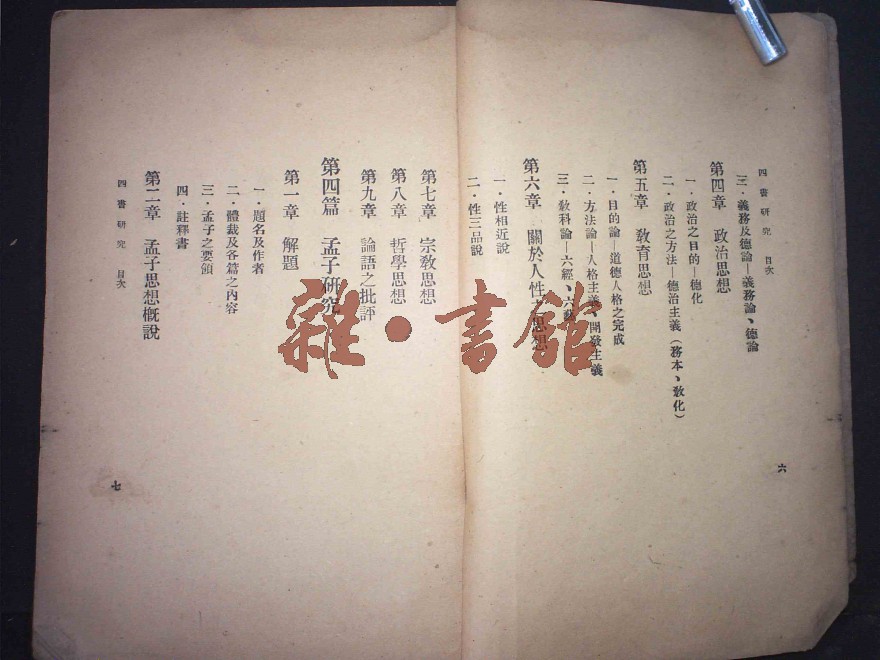 四書研究 目次
三．義務及德論—義務論、德論
第四章 政治思想
一．政治之目的—德化
二．政治之方法—德治主義（務本、敎化）
第五章 敎育思想
一．目的論—道德人格之完成
二．方法論—人格主義、開發主義
三．敎科論—六經、六藝
第六章 關於人性之思想
一．性相近說
二．性三品說
六
第七章 宗敎思想
第八章 哲學思想
第九章 論語之批評
第四篇 孟子研究
第一章 解題
一．題名及作者
二．體裁及各篇之內容
三．孟子之要領
四．註釋書
第二章 孟子思想概說
四書研究 目次
七
雜·書館